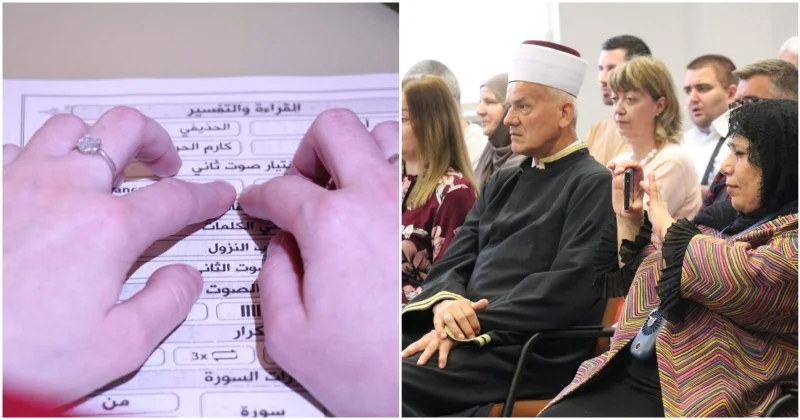 القراءة والتفسير
الحذيفي
كارم الحر
ختيار صوت ثاني
ي الكلمات
ب النزول
وت الثاني
الصوت
كرار
3x
رات السورة
من
سورة